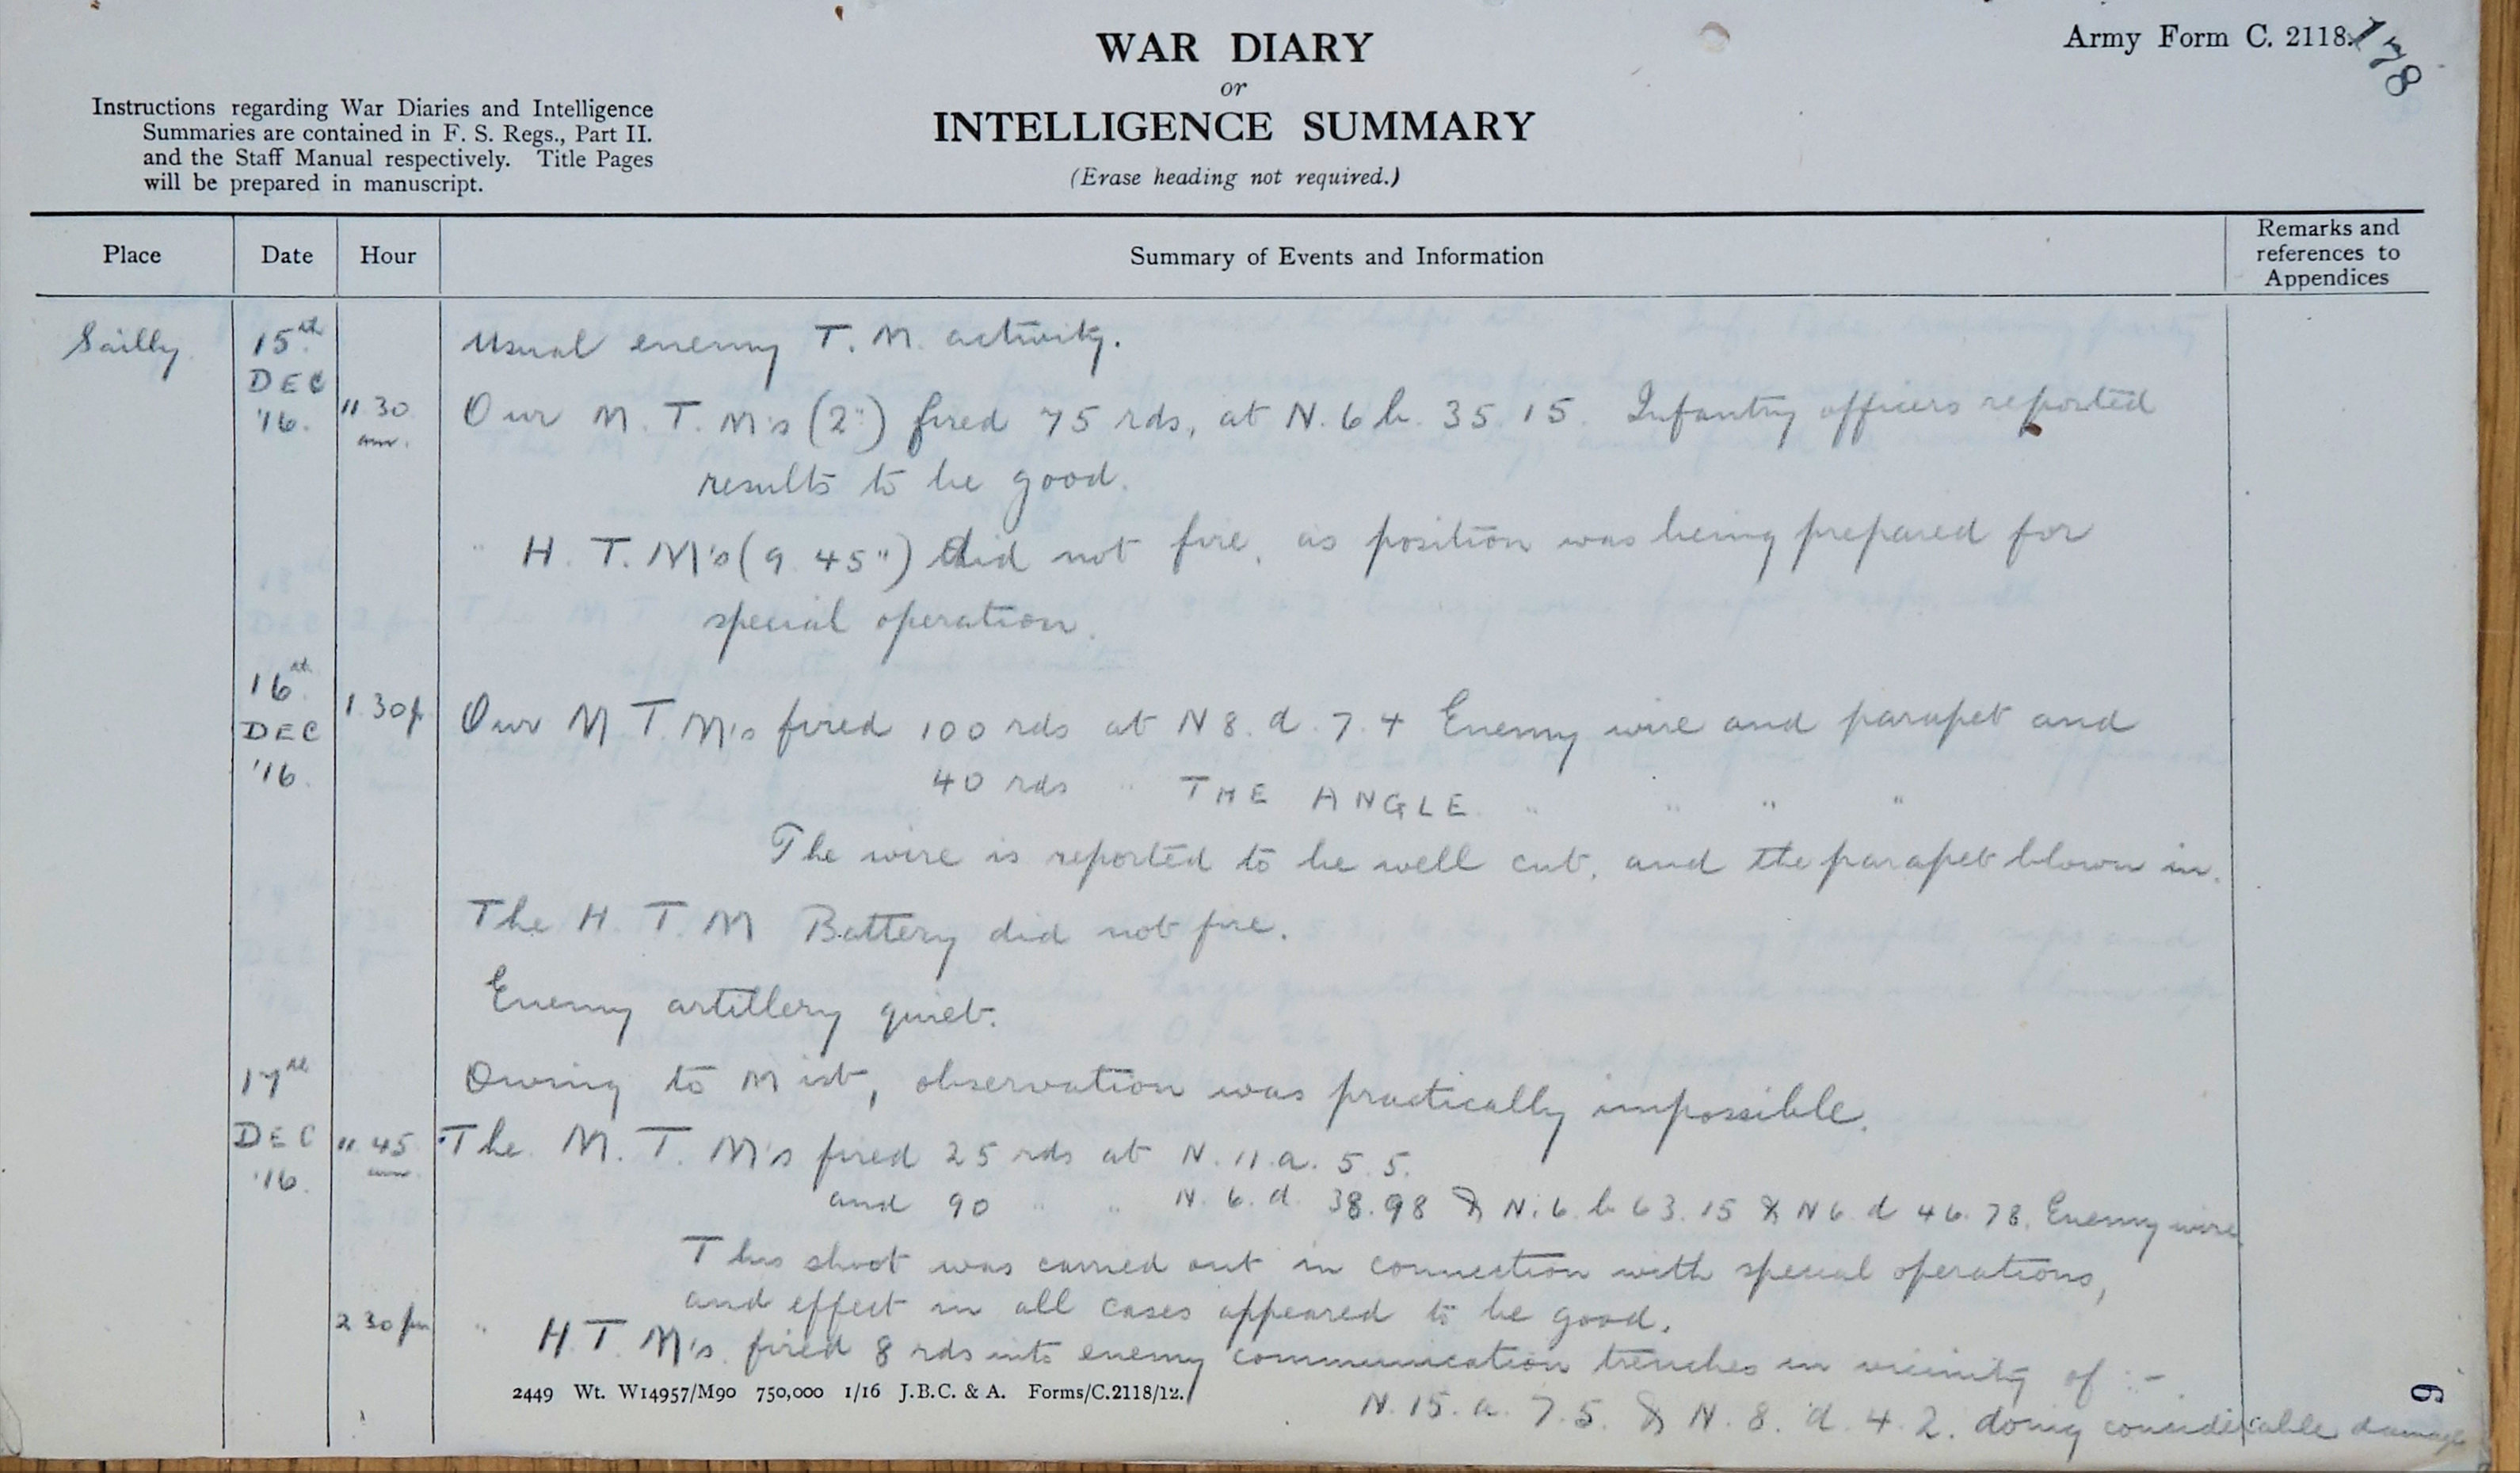 WAR DIARY
or
INTELLIGENCE SUMMARY
(Erase heading not required.)
Army Form C. 2118.
178
Instructions regarding War Diaries and Intelligence
Summaries are contained in F. S. Regs., Part II.
and the Staff Manual respectively. Title Pages
will be prepared in manuscript.
Place Date Hour Summary of Events and Information Remarks and references to Appendices
Sailly 15th DEC '16. Usual enemy T. M. activity.
11.30 am. Our M. T. M's (2") fired 75 rds, at N. 6 b. 35.15. Infantry officers reported
results to be good.
" H. T. M's (9.45") did not fire, as position was being prepared for
special operation.
16th DEC '16. 1.30p Our M.T.M's fired 100 rds at N 8. d. 7.4 Enemy wire and parapet and
40 rds " THE ANGLE. " " " "
The wire is reported to be well cut, and the parapet blown in.
The H. T. M Battery did not fire.
Enemy artillery quiet.
17th DEC '16. Owing to Mist, observation was practically impossible.
11.45 am. The M. T. M's fired 25 rds at N. 11.a. 5.5.
and 90 " " N. 6. d. 38.98 & N. 6. b 63.15 & N 6. d 46.78. Enemy wire
This shoot was carried out in connection with special operations,
and effect in all cases appeared to be good.
2 30 pm " H.T. M's. fired 8 rds into enemy communication trenches in vicinity of :-
N. 15. a. 7.5. & N. 8. d. 4.2. doing considerable damage
2449 Wt. W14957/M90 750,000 1/16 J.B.C. & A. Forms/C.2118/12.